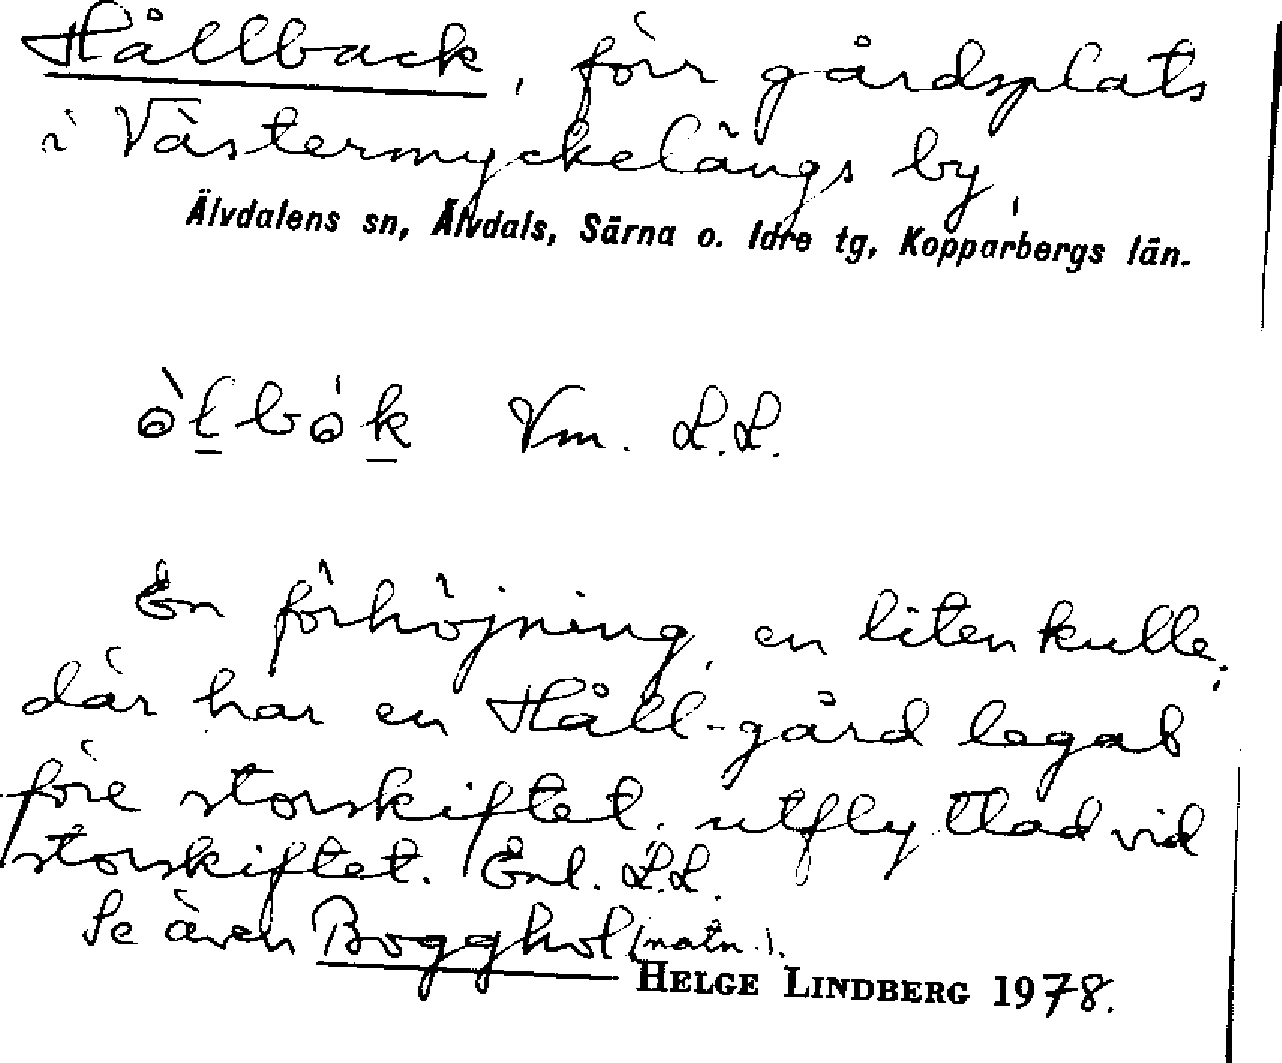 Hållback, förr gårdsplats
i Västermyckelängs by,
Älvdalens sn, Älvdals, Särna o. Idre tg, Kopparbergs län.
òl̠bók̠ Vm. L.L.
En förhöjning, en liten kulle,
där har en Håll-gård legat
före storskiftet, utflyttad vid
storskiftet. Enl. L.L.
Se även Bogghol (natn.).
HELGE LINDBERG 1978.